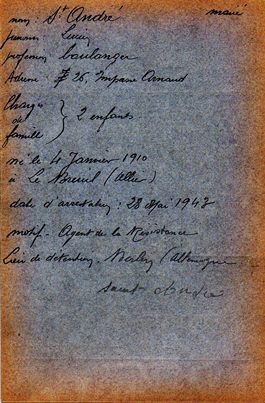 nom : St André marié
prénom : Lucien
profession boulanger
Adresse : 26, Impasse Arnaud
Charges
de } 2 enfants
famille
né le 4 Janvier 1910
à Le Breuil (Allier)
date d'arrestation : 28 Mai 1942
motif - Agent de la Résistance
Lieu de détention - (Allemagne
Saint André